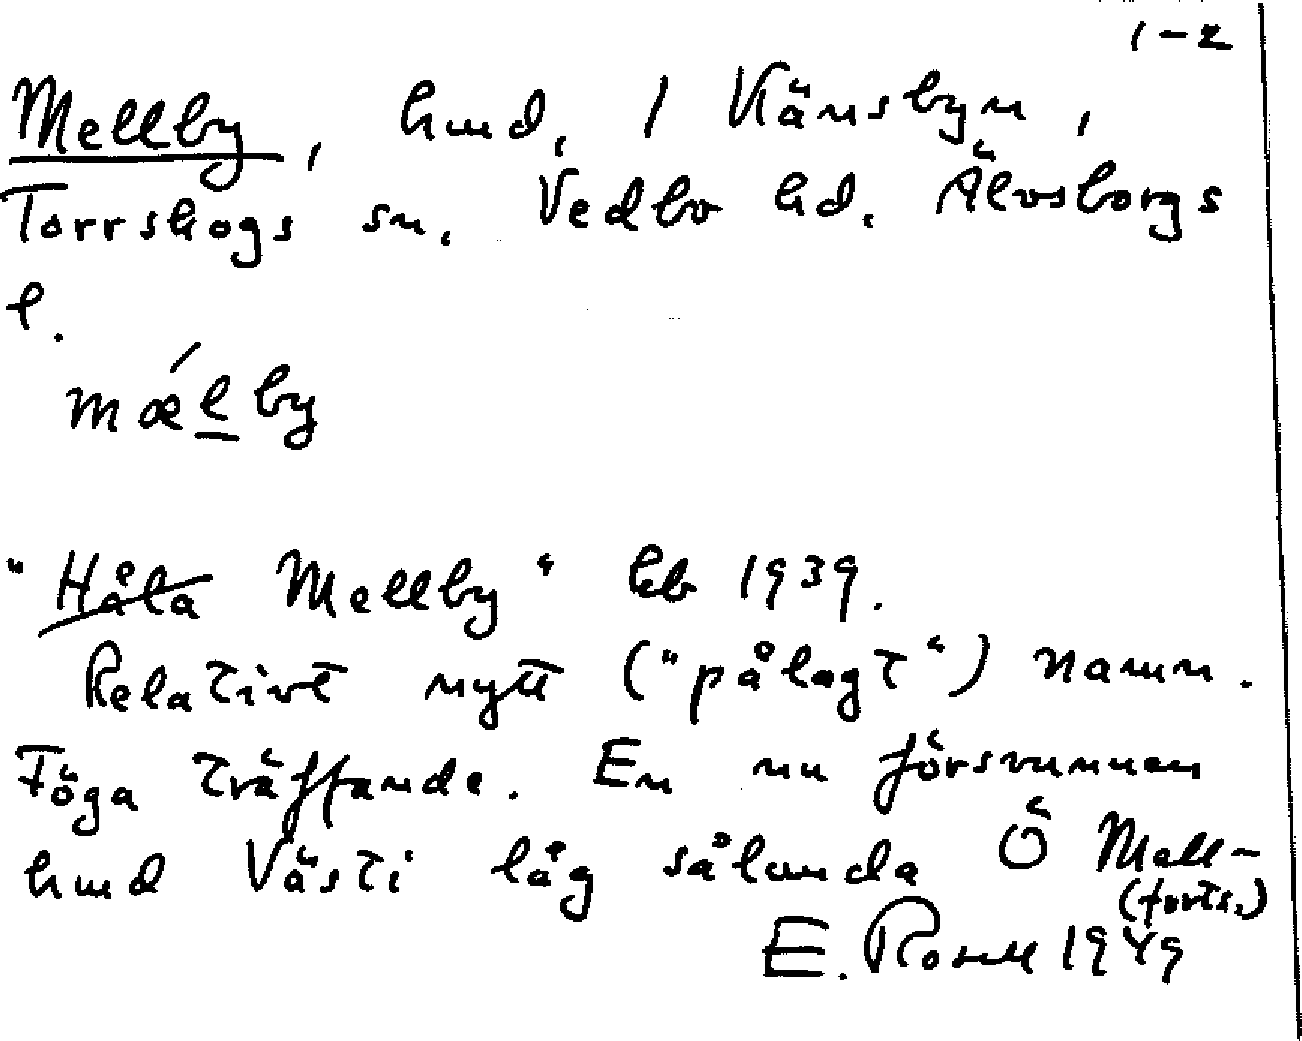 1-2
Mellby, hmd, / Vänsbyn,
Torrskogs sn. Vedbo hd. Älvsborgs
l.
mǽlby
"Håla Mellby" kb 1939.
Relativt nytt ("pålagt") namn.
Föga träffande. En nu försvunnen
hmd Västi låg sålunda Ö Mell-
(forts.)
E. Rosell 1949